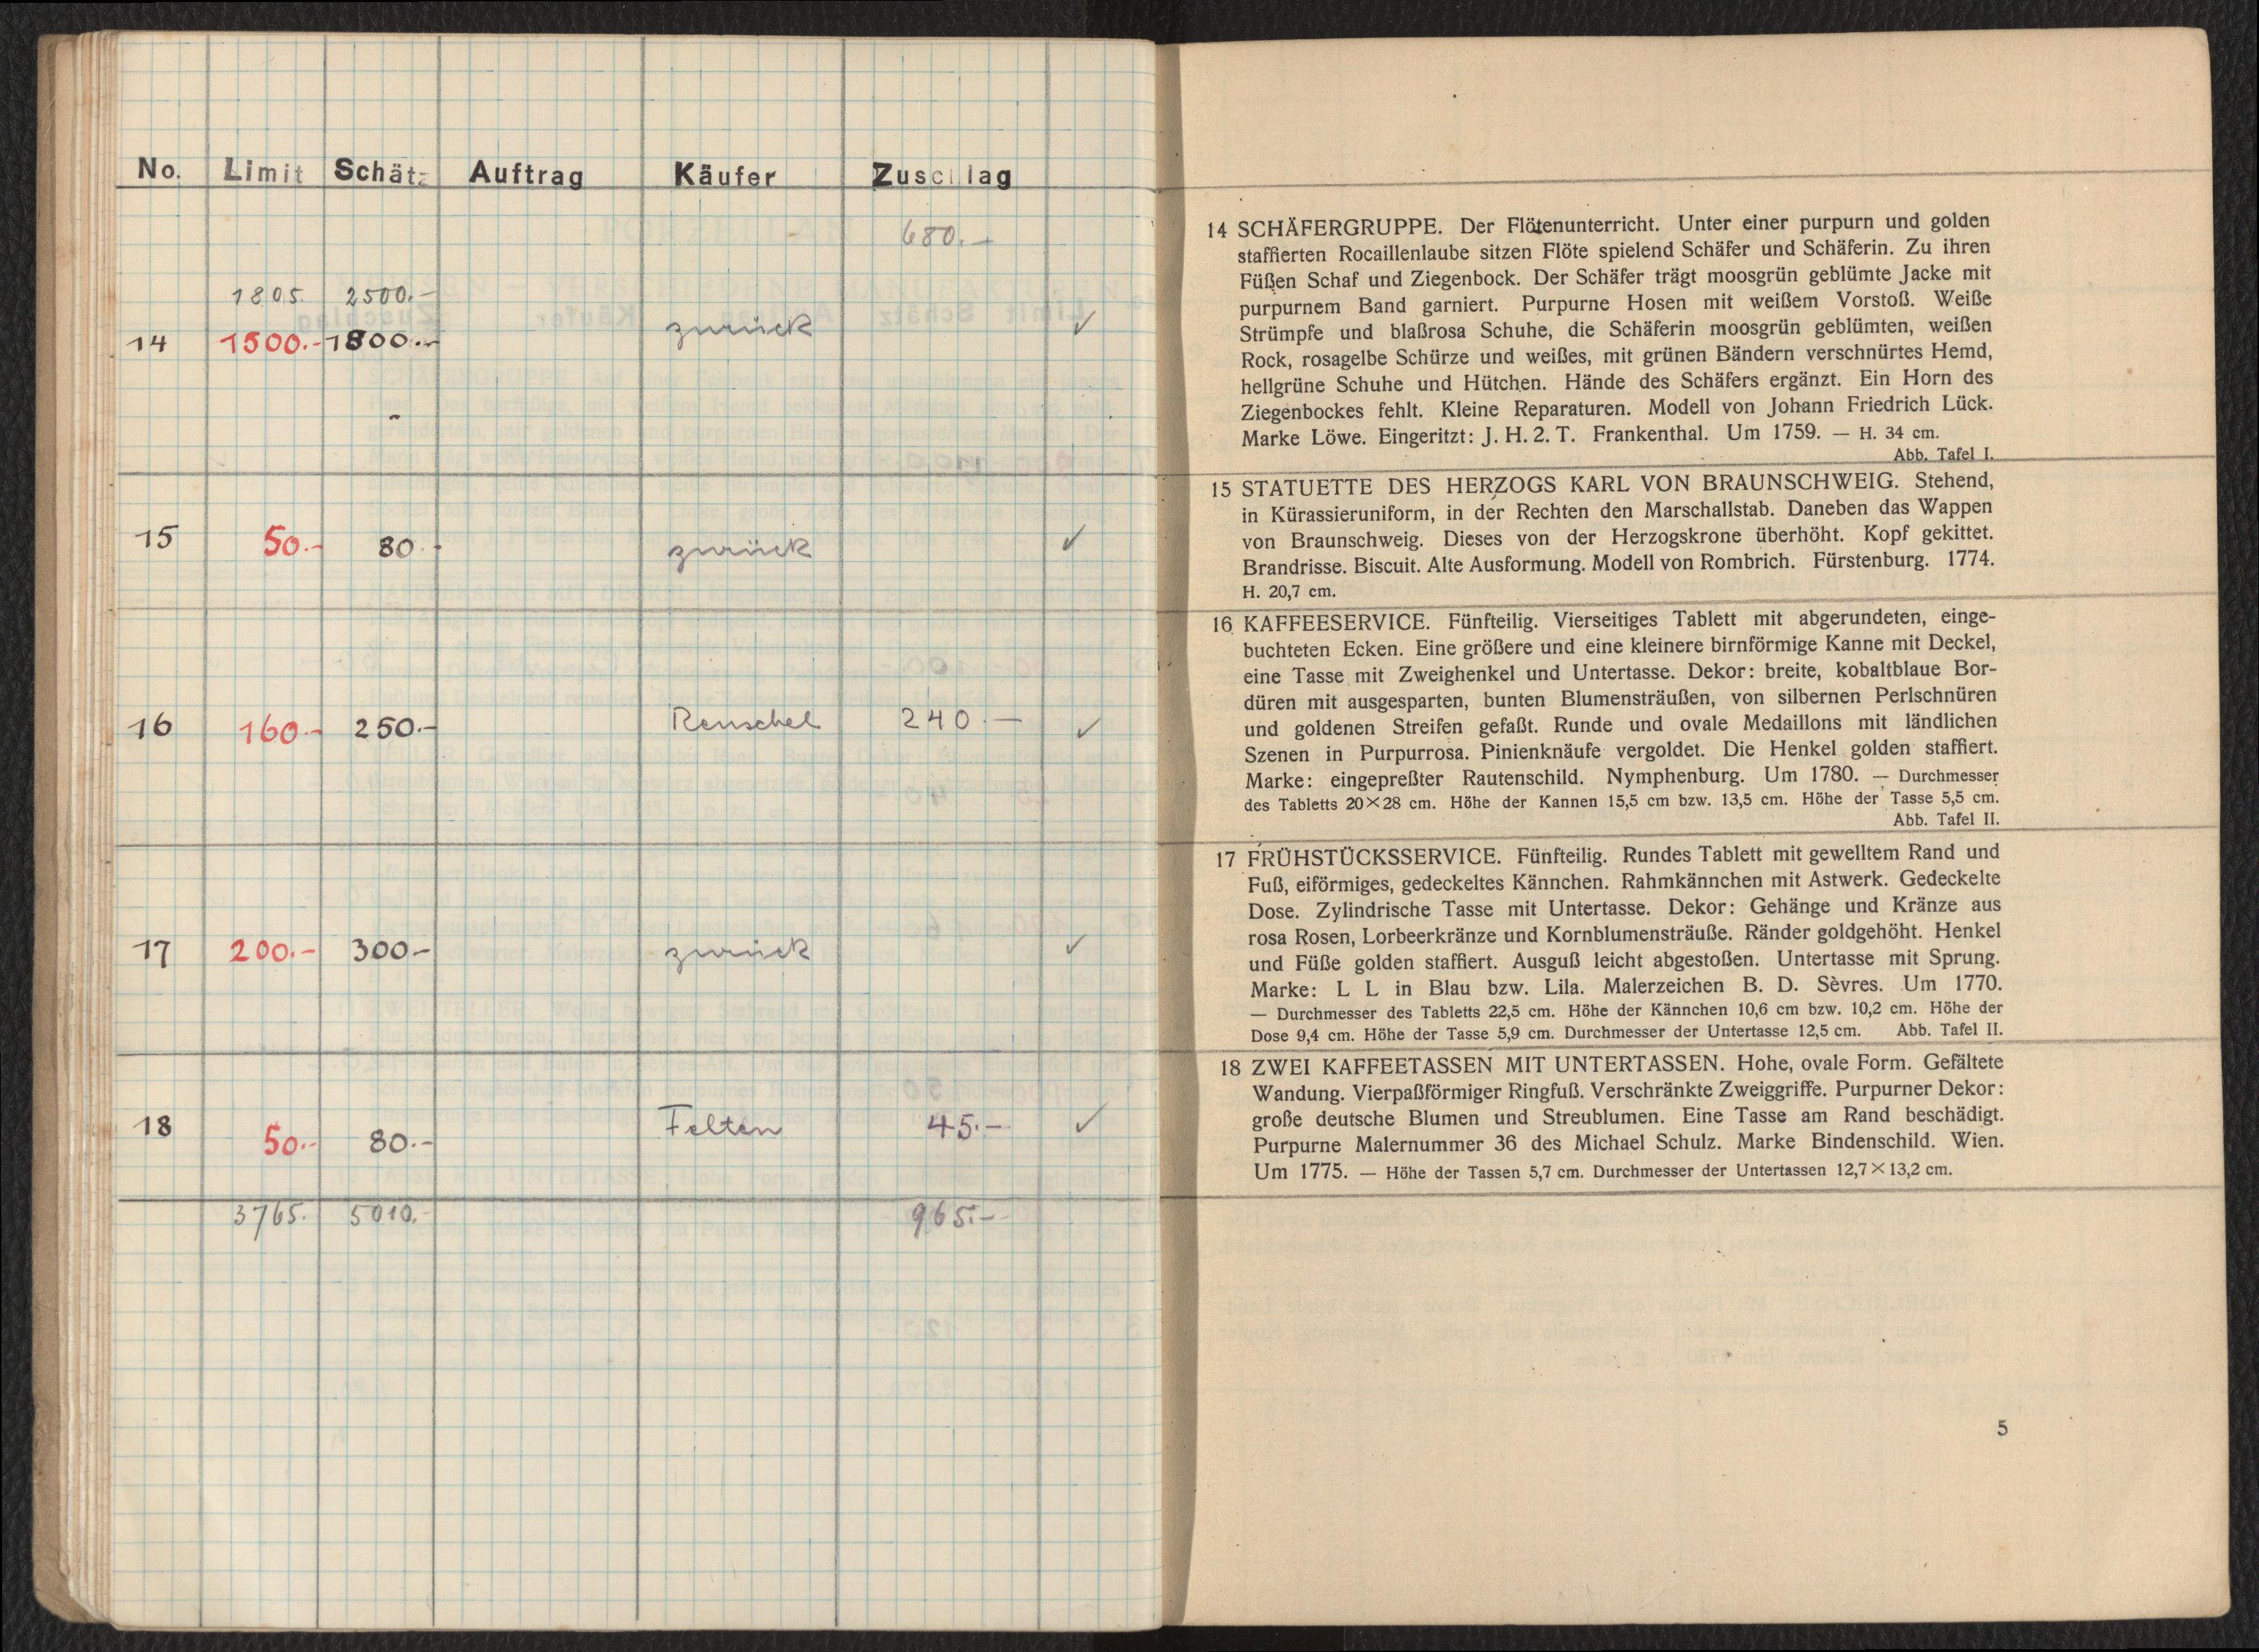 No. Limit Schätz Auftrag Käufer Zuschlag
680.-
1805. 2500.-
14 1500.- 1800.- zurück ✓
15 50.- 80.- zurück ✓
16 160.- 250.- Renschel 240.- ✓
17 200.- 300- zurück ✓
18 50.- 80.- Felten 45.- ✓
3765. 5010.- 965.-
14 SCHÄFERGRUPPE. Der Flötenunterricht. Unter einer purpurn und golden
staffierten Rocaillenlaube sitzen Flöte spielend Schäfer und Schäferin. Zu ihren
Füßen Schaf und Ziegenbock. Der Schäfer trägt moosgrün geblümte Jacke mit
purpurnem Band garniert. Purpurne Hosen mit weißem Vorstoß. Weiße
Strümpfe und blaßrosa Schuhe, die Schäferin moosgrün geblümten, weißen
Rock, rosagelbe Schürze und weißes, mit grünen Bändern verschnürtes Hemd,
hellgrüne Schuhe und Hütchen. Hände des Schäfers ergänzt. Ein Horn des
Ziegenbockes fehlt. Kleine Reparaturen. Modell von Johann Friedrich Lück.
Marke Löwe. Eingeritzt: J. H. 2. T. Frankenthal. Um 1759. — H. 34 cm.
Abb. Tafel I.
15 STATUETTE DES HERZOGS KARL VON BRAUNSCHWEIG. Stehend,
in Kürassieruniform, in der Rechten den Marschallstab. Daneben das Wappen
von Braunschweig. Dieses von der Herzogskrone überhöht. Kopf gekittet.
Brandrisse. Biscuit. Alte Ausformung. Modell von Rombrich. Fürstenburg. 1774.
H. 20,7 cm.
16 KAFFEESERVICE. Fünfteilig. Vierseitiges Tablett mit abgerundeten, einge-
buchteten Ecken. Eine größere und eine kleinere birnförmige Kanne mit Deckel,
eine Tasse mit Zweighenkel und Untertasse. Dekor: breite, kobaltblaue Bor-
düren mit ausgesparten, bunten Blumensträußen, von silbernen Perlschnüren
und goldenen Streifen gefaßt. Runde und ovale Medaillons mit ländlichen
Szenen in Purpurrosa. Pinienknäufe vergoldet. Die Henkel golden staffiert.
Marke: eingepreßter Rautenschild. Nymphenburg. Um 1780. — Durchmesser
des Tabletts 20×28 cm. Höhe der Kannen 15,5 cm bzw. 13,5 cm. Höhe der Tasse 5,5 cm.
Abb. Tafel II.
17 FRÜHSTÜCKSSERVICE. Fünfteilig. Rundes Tablett mit gewelltem Rand und
Fuß, eiförmiges, gedeckeltes Kännchen. Rahmkännchen mit Astwerk. Gedeckelte
Dose. Zylindrische Tasse mit Untertasse. Dekor: Gehänge und Kränze aus
rosa Rosen, Lorbeerkränze und Kornblumensträuße. Ränder goldgehöht. Henkel
und Füße golden staffiert. Ausguß leicht abgestoßen. Untertasse mit Sprung.
Marke: L L in Blau bzw. Lila. Malerzeichen B. D. Sèvres. Um 1770.
— Durchmesser des Tabletts 22,5 cm. Höhe der Kännchen 10,6 cm bzw. 10,2 cm. Höhe der
Dose 9,4 cm. Höhe der Tasse 5,9 cm. Durchmesser der Untertasse 12,5 cm. Abb. Tafel II.
18 ZWEI KAFFEETASSEN MIT UNTERTASSEN. Hohe, ovale Form. Gefältete
Wandung. Vierpaßförmiger Ringfuß. Verschränkte Zweiggriffe. Purpurner Dekor:
große deutsche Blumen und Streublumen. Eine Tasse am Rand beschädigt.
Purpurne Malernummer 36 des Michael Schulz. Marke Bindenschild. Wien.
Um 1775. — Höhe der Tassen 5,7 cm. Durchmesser der Untertassen 12,7×13,2 cm.
5